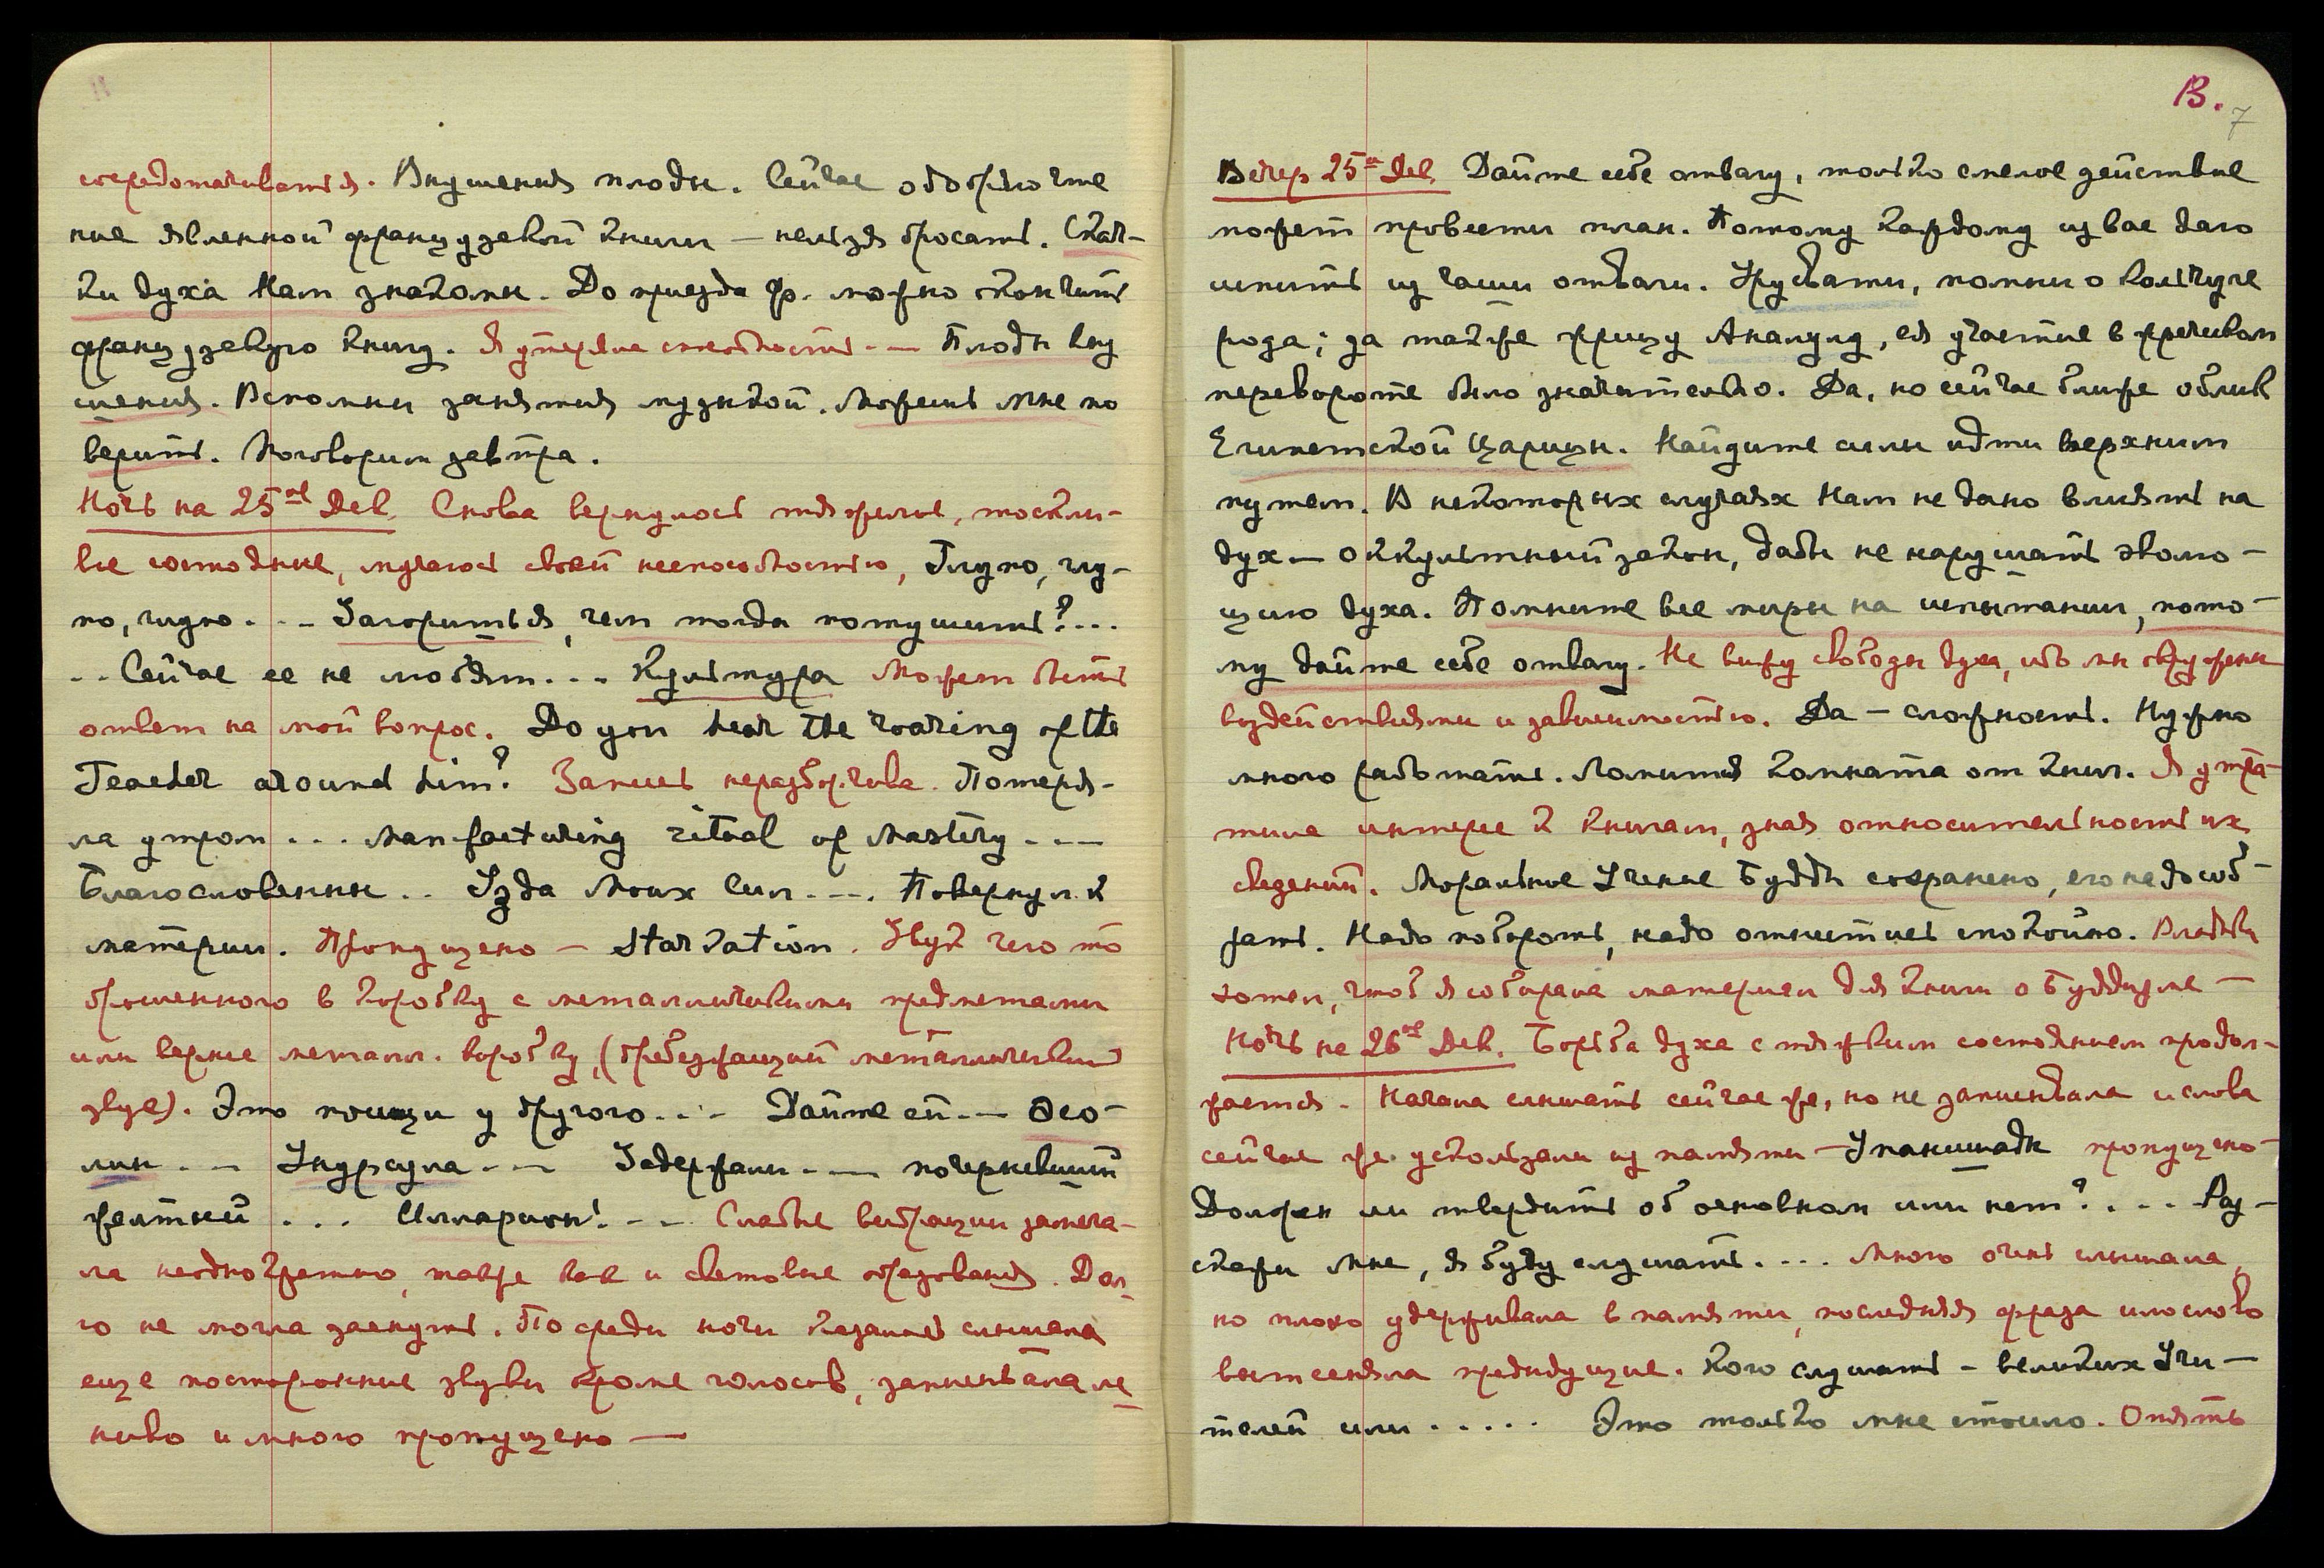 В.
7
сосредотачиваться. Внушения плоды. Сейчас одобряю чте
ние явленной французской книги — нельзя бросать. Скач-
ки духа Нам знакомы. До приезда Ф. можно кончить
французскую книгу. Я утеряла способность. — Плоды вну
шения. Вспомни занятия музыкой. Можешь мне по
верить. Поговорим завтра.
Ночь на 25ое Дек. Снова вернулось тяжелое, тоскли-
вое состояние, мучаюсь своей неспособностью, Глупо, глу-
по, глупо. . – Загорится, чем тогда потушить?...
.. Сейчас ее не любят... Культура Может быть
ответ на мой вопрос. Do you hear the roaring of the
Teacher around him? Запись неразборчива. Потеря-
ла утром ... Manfacturing ritual of Mastery ---
Благословенны .. Узда Моих Сил ---. Повернул к
материи. Пропущено — Starvation. Звук чего то
брошенного в коробку с металлическими предметами
или вернее металл. коробку, (дребезжащий металлический
звук). Это поищи у другого... Дайте ей ...
лин ... ... Задержали ... почерневший
желтый ... Илларион! ... Слабые вибрации замеча-
ла неоднократно, также как и световые образования. Дол
го не могла заснуть. По среди ночи казалось слышала
еще посторонние звуки кроме голосов, записывала ле
ниво и много пропущено —
Вечер 25ое Дек. Дайте себе отвагу, только смелое действие
может провести план. Потому каждому из вас дано
испить из чаши отваги. Урусвати, помни о кольчуге
рода; да также жрицу Анануид, ея участие в жреческом
перевороте было значительно. Да, но сейчас ближе облик
Египетской Царицы. Найдите силы идти верхним
путем. В некоторых случаях Нам не дано влиять на
дух — оккультный закон, дабы не нарушать эволю-
цию духа. Помните все миры на испытании, пото-
му дайте себе отвагу. Не вижу свободы духа, ибо мы окружены
воздействиями и зависимостью. Да — сложность. Нужно
много работать. Ломится комната от книг. Я утра-
тила интерес к книгам, зная относительность их
сведений. Моральное Учение Будды сохранено, его надо соб-
рать. Надо побороть, надо отнестись спокойно. Владыка
хотел, чтоб я собирала материал для книги о Буддизме —
Ночь на 26ое Дек. Борьба духа с тяжким состоянием продол-
жается. Начала слышать сейчас же, но не записывала и слова
сейчас же ускользали из памяти — Упанишады пропущено-
Должен ли твердить об основном или нет? ... Рас-
скажи мне, я буду слушать.... Много очень слышала,
но плохо удерживала в памяти, последняя фраза или слово
вытесняла предидущие. Кого слушать – великих Учи-
телей или ..... Это только мне стоило. Опять